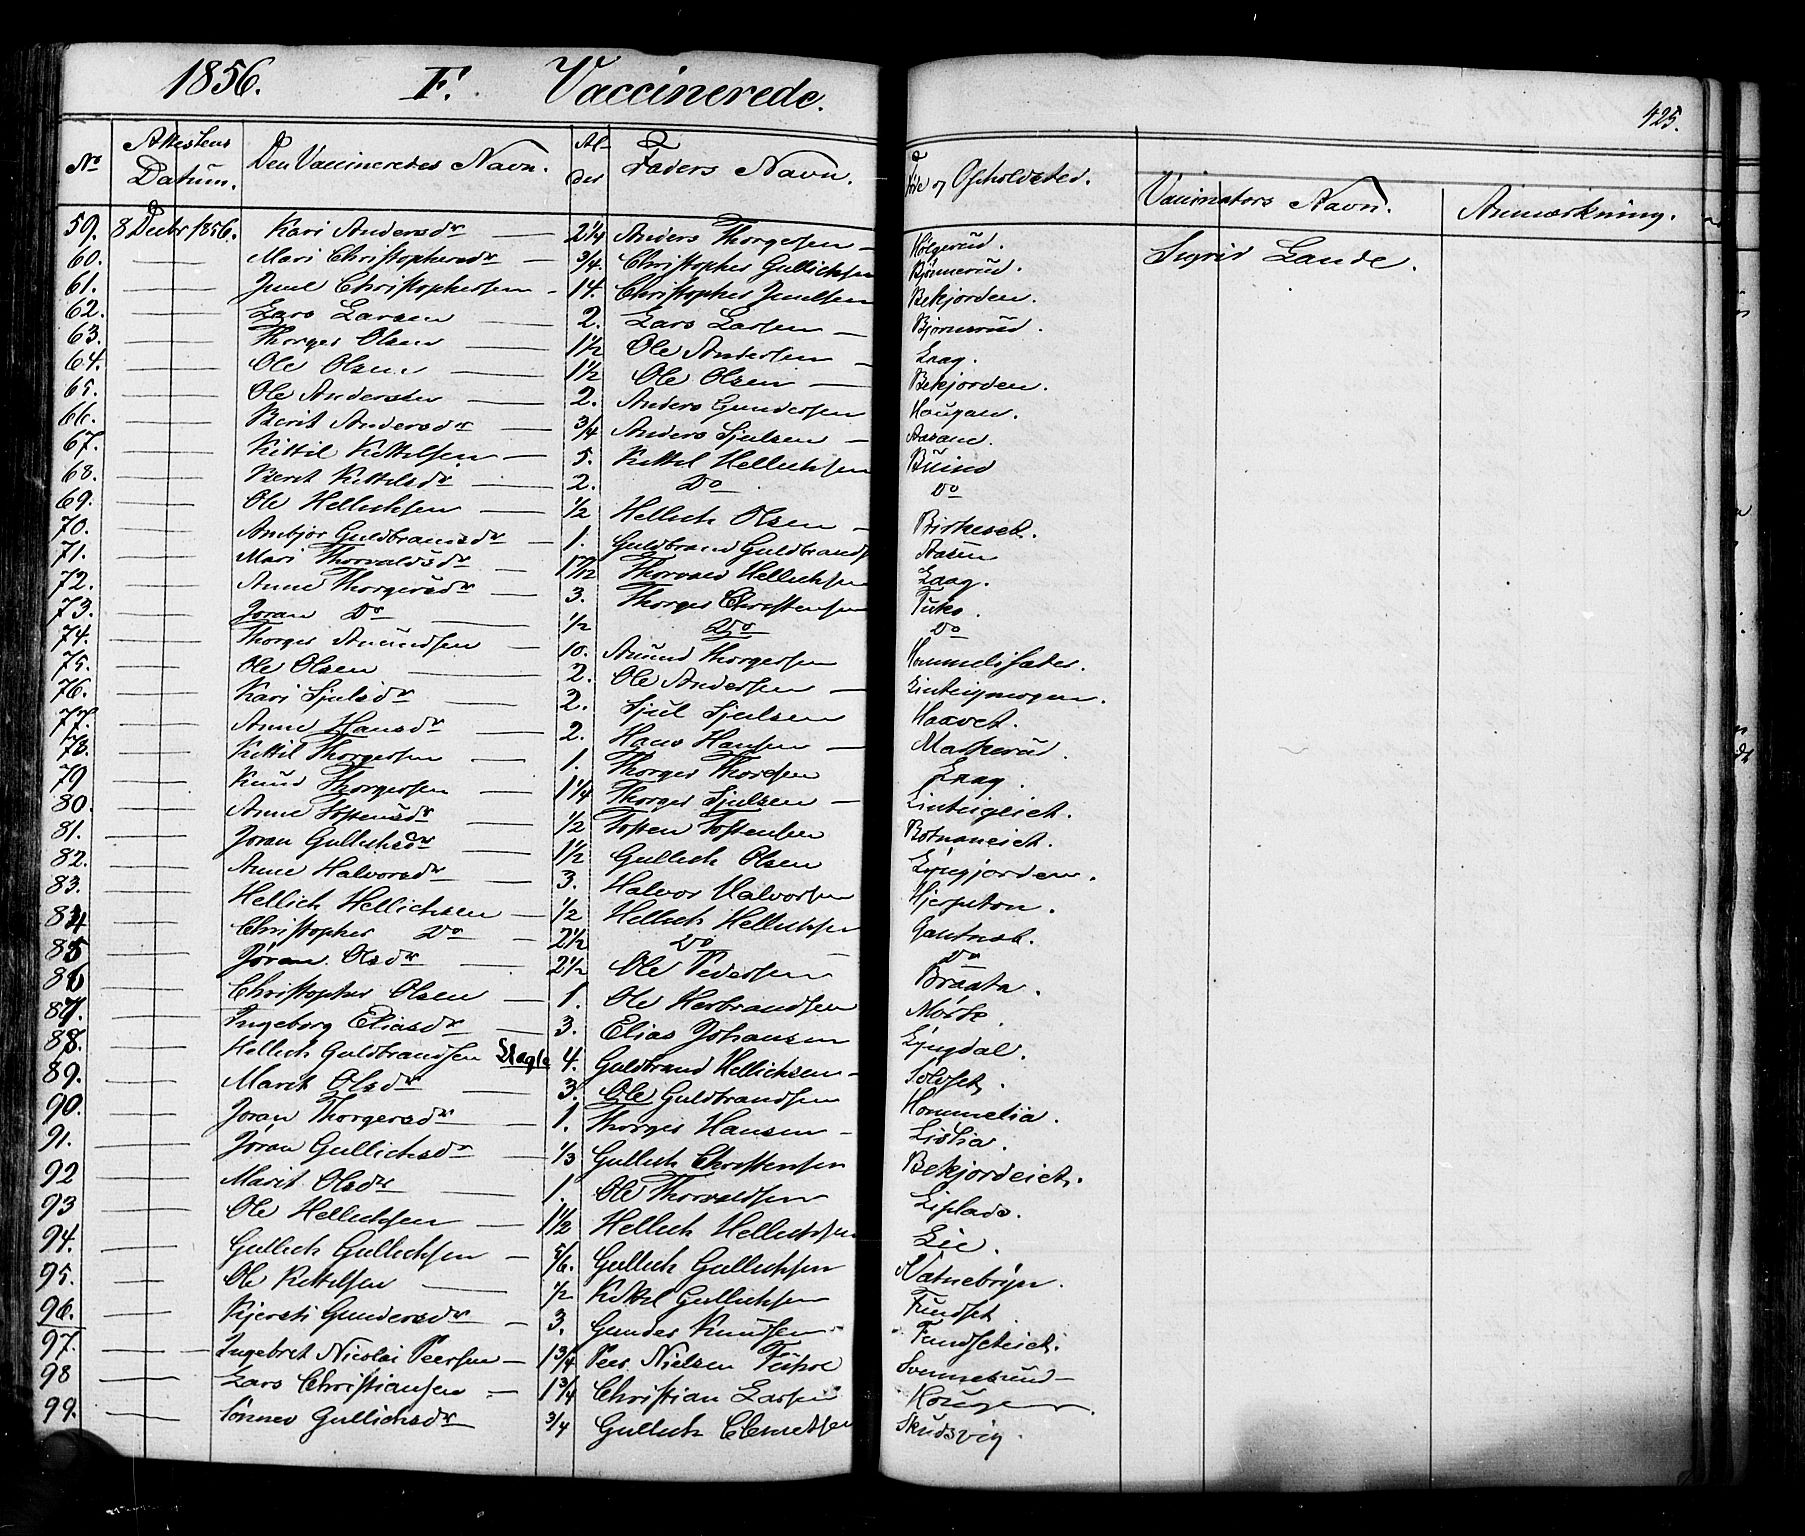 1856. F. Vaccinerede.
425.
No Attestens Datum. Den Vaccineredes Navn. Alder Faders Navn. Opholdsted. Vaccinators Navn. Anmærkning.
59. 8 Decbr 1856. Kari Andersdr — 2 1/4 Anders Thorgersen — Kølgerud. Sigrid Lande.
60. — Mari Christophersdr — 3/4. Christopher Gullichsen Bjønnerud.
61. — Juul Christophersen - 14. Christopher Juulsen Bekjorden.
62. — Lars Larsen — 2. Lars Larsen — Bjørnerud.
63. — Thorger Olsen — 1 1/2 Ole Andersen — Laag.
64. — Ole Olsen — 1 1/2 Ole Olsen — Bekjorden.
65. — Ole Andersen — 2. Anders Gundersen Haugan.
66. — Berit Andersdr — 3/4 Anders Sjulsen — Aasan.
67. — Kittil Kittilsen — 5. Kittil Hellichsen
68. — Berit Kittilsdr — 2. Do Do
69. — Ole Hellichsen — 1/2 Hellich Olsen — Birkeset.
70. — Guldbransdr — 1. Guldbrand Guldbrands Aasen
71. — Mari Thorvaldsdr — Thorvald Hellichsen Laag.
72. — Anne Thorgersdr — 3. Thorger Christensen
73. — Joran Do — 1/2 Do Do
74. — Thorger Amundsen — 10. Amund Thorgersen Hommelisæter.
75. — Ole Olsen — 2. Ole Andersen —
76. — Kari Sjulsdr — 2. Sjul Sjulsen
77. — Anne Hansdr — 2. Hans Hansen —
78. — Kittil Thorgersen — 1. Thorger Thoresen Laag.
79 — Knud Thorgersen — 1 1/4 Thorger Sjulsen —
80. — Anne Tostensdr — 1/2 Tosten Tostensen Botnaneiet.
81. — Joran Gullichsdr — 1 1/2 Gullich Olsen
82. — Anne Halvorsdr — 3. Halvor Halvorsen
83. — Hellich Hellichsen — 1/2 Hellich Hellichsen
84 — Christopher Do — 2 1/2 Do Do
85 — Jøran Olsdr — 2 1/2 Ole Pedersen Braata.
86 — Christopher Olsen — 1. Ole Herbrandsen
87. — Ingeborg Eliasdr — 3. Elias Johansen Lyngdal.
88. — Hellich Guldbrandsen 4. Guldbrand Hellichsen -
89. — Marit Olsdr — 3. Ole Guldbrandsen Hommelia.
90. — Joran Thorgersdr — 1. Thorger Hansen -
91. — Joran Gullichsdr — 1/3 Gullich Christensen Bekjordeiet.
92 — Marit Olsdr — 1. Ole Thorvaldsen
93 — Ole Hellichsen — 1 1/2 Hellich Hellichsen Lie.
94. — Gullich Gullichsen — 5/6. Gullich Gullichsen Vatnebryn.
95. — Ole Kittilsen — 1/2 Kittil Gullichsen Fundset
96. — Kjersti Gundersdr — 3. Gunder Knudsen Fundseteiet.
97. — Ingebret Nicolai Peersen — 1 3/4 Peer Nielsen
98 — Lars Christiansen — 1 3/4 Christian Larsen Hougen
99. — Sønnev Gullichsdr 3/4 Gullich Clemetsen Skudsvig